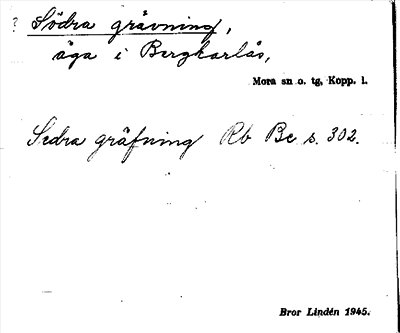 ? Södra grävning,
äga i Bergkarlås,
Mora sn o. tg, Kopp. l.
Sedra gräfning Rb Bc s. 302.
Bror Lindén 1945.